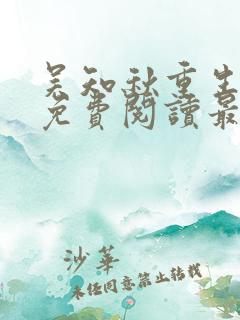 吴知秋重生
免費閱讀最
沙華
未经同意禁止转载